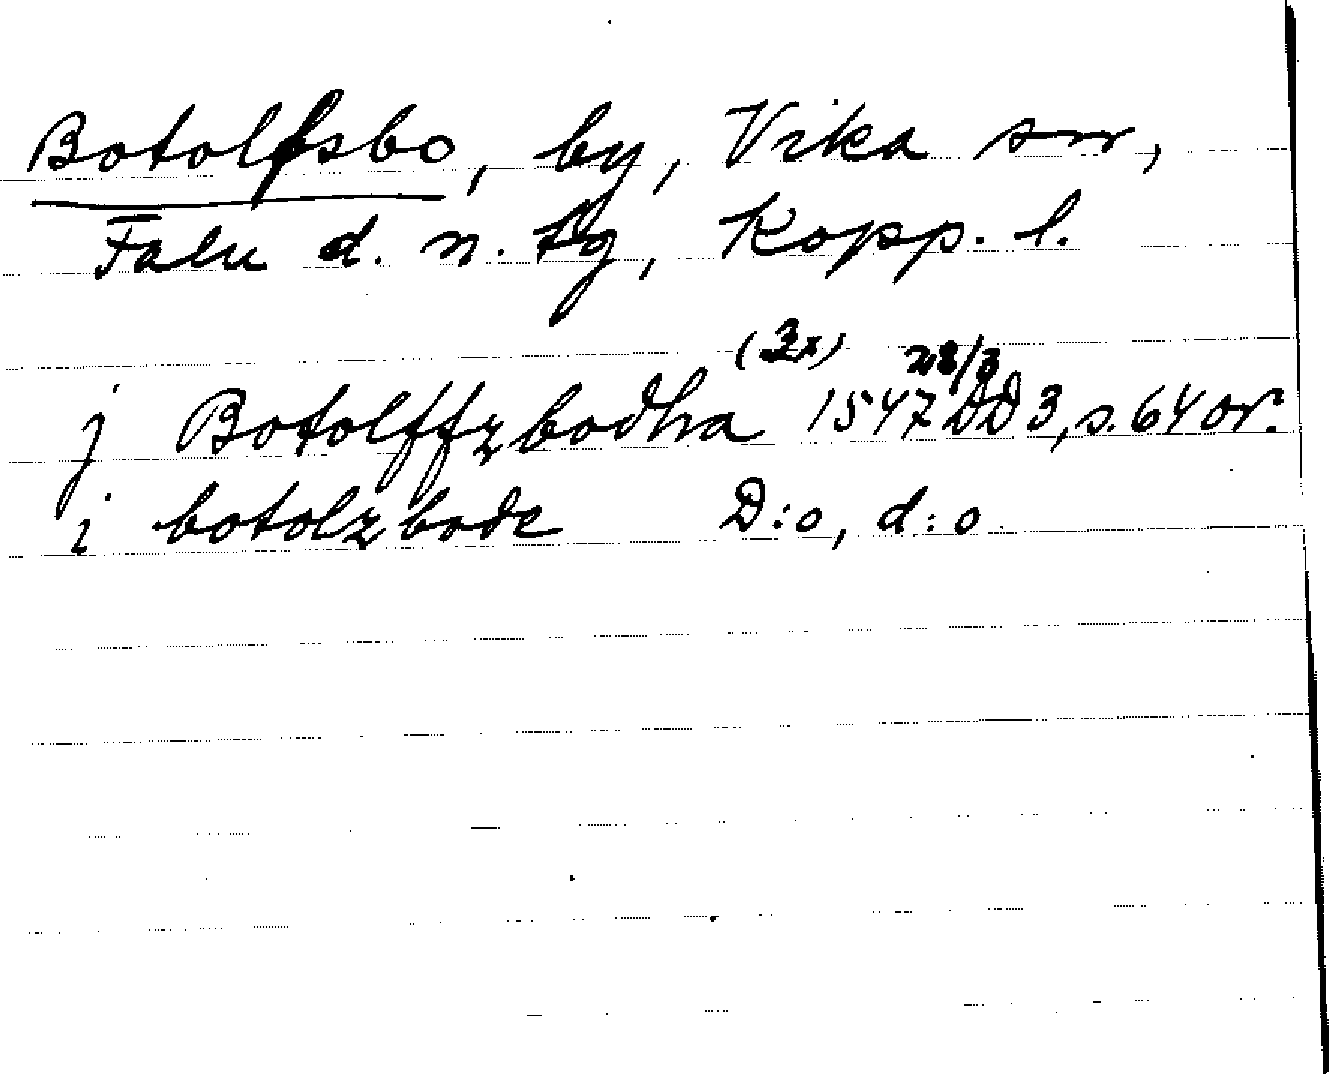 Botolfsbo, by, Vika sn,
Falu d. n. tg, Kopp. l.
(3x) 28/3
j Botolffzbodha 1547 DD 3, s. 64 or.
i botolzbode D:o, d:o